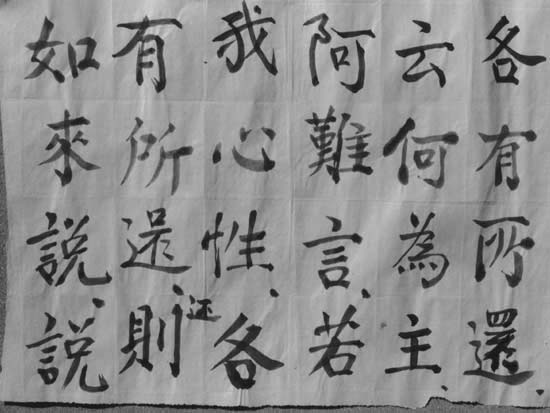 各有所還
云何為主、
阿難言、若
我心性、各
有所還、則
还
如來説、説